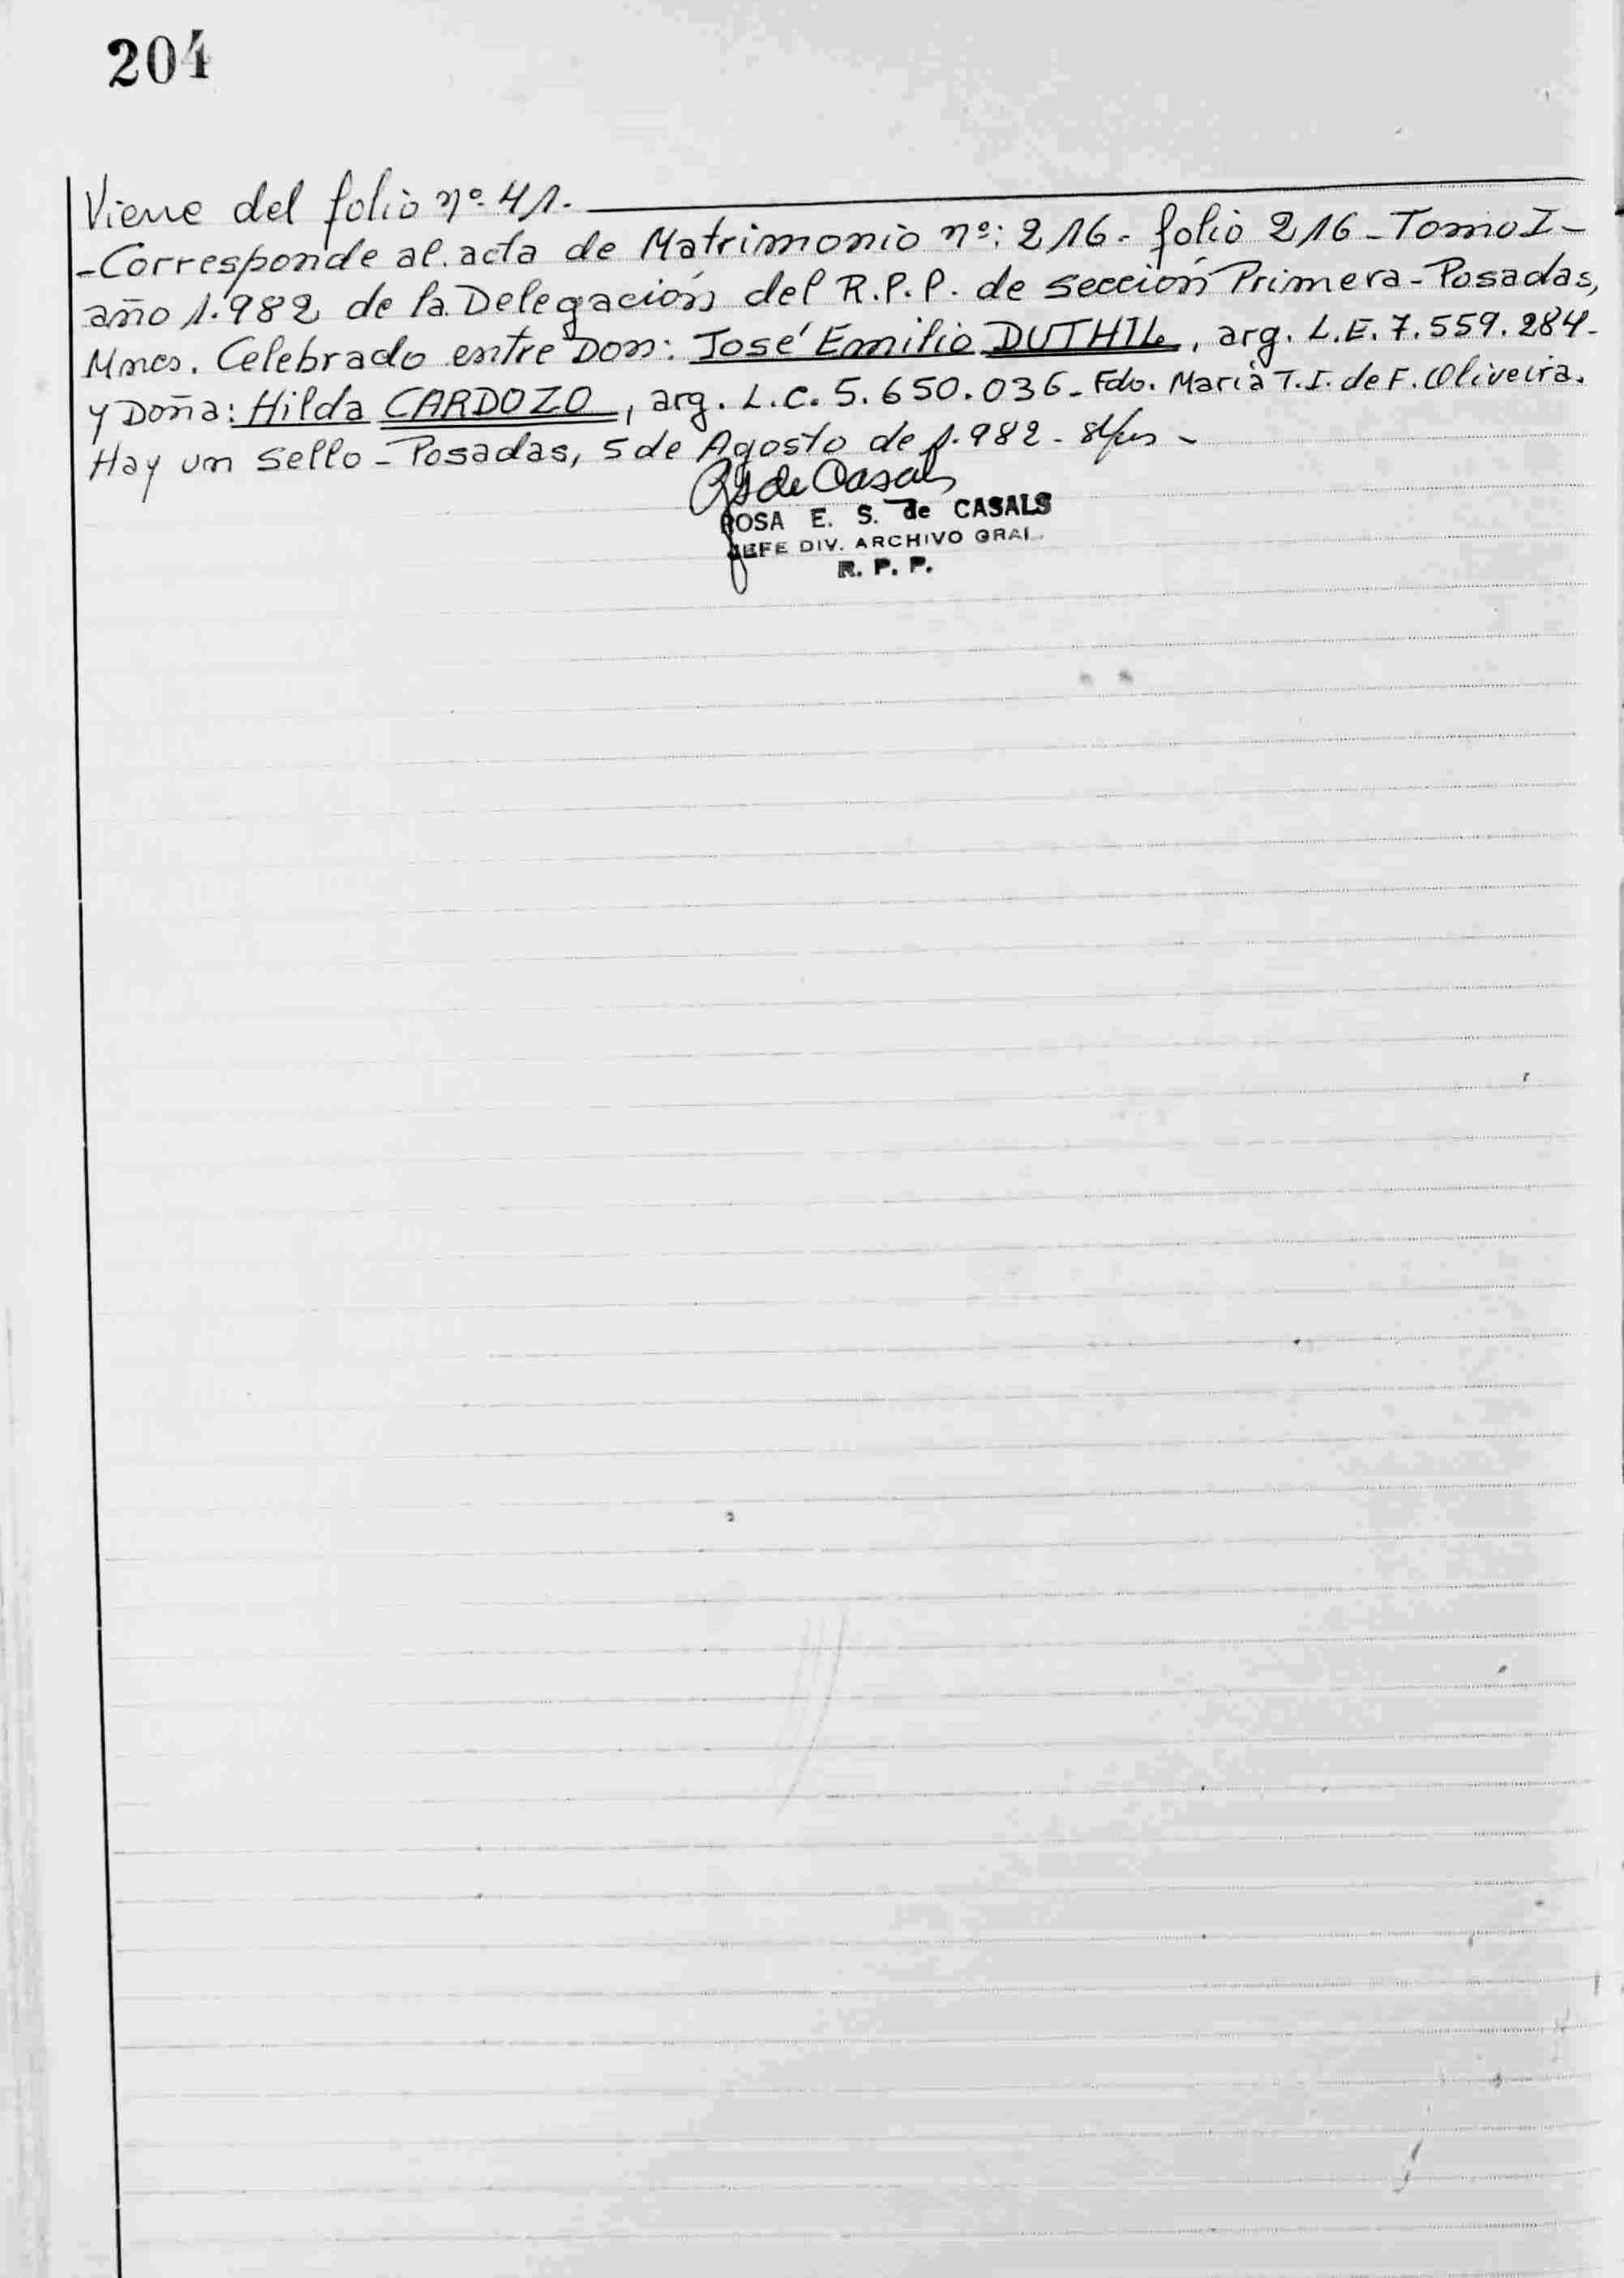 204
Viene del folio nº 41.
-Corresponde al acta de Matrimonio nº: 216. folio 216 - Tomo I -
año 1.982 de la Delegación del R.P.P. de sección Primera - Posadas,
Mnes. Celebrado entre Don: José Emilio DUTHIL, arg. L.E. 7.559.284-
y Doña: Hilda CARDOZO, arg. L.C. 5.650.036 - Fdo. María T.I. de F. Oliveira.
Hay un sello - Posadas, 5 de Agosto de 1.982 -
de Casals
ROSA E. S. de CASALS
JEFE DIV. ARCHIVO GRAL.
R. P. P.